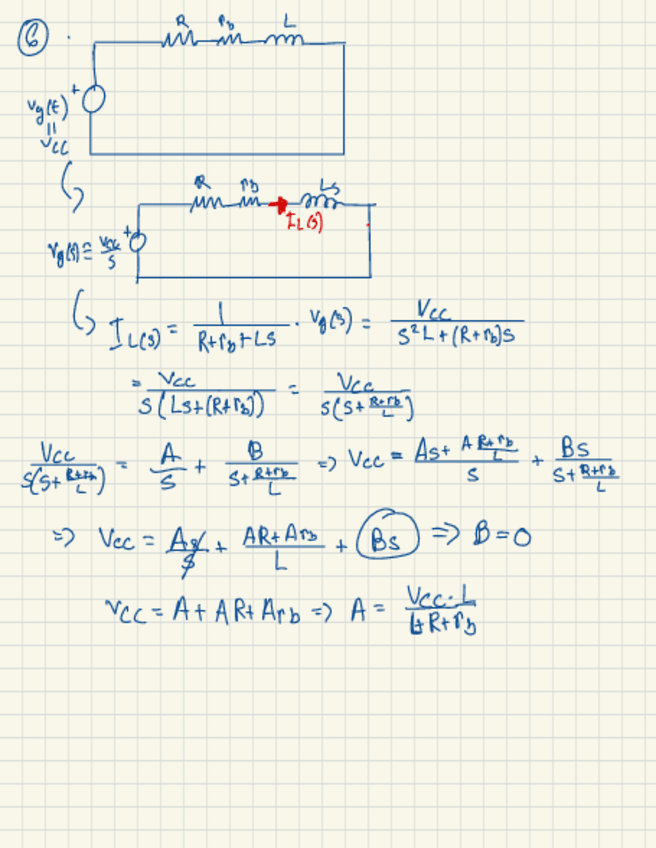 6 .
R rb L
+
vg(t)
=
VCC
R rb Ls
+
IL(s)
vg(s) = Vcc/s
IL(s) = 1/(R+rb+Ls) · Vg(s) = Vcc/(s²L+(R+rb)s)
= Vcc/(s(Ls+(R+rb))) = Vcc/(s(s+(R+rb)/L))
Vcc/(s(s+(R+rb)/L)) = A/s + B/(s+(R+rb)/L) => Vcc = (As+A(R+rb)/L)/s + Bs/(s+(R+rb)/L)
=> Vcc = As/s + (AR+Arb)/L + Bs => B=0
VCC = A+AR+Arb => A = Vcc·L/(L+R+rb)